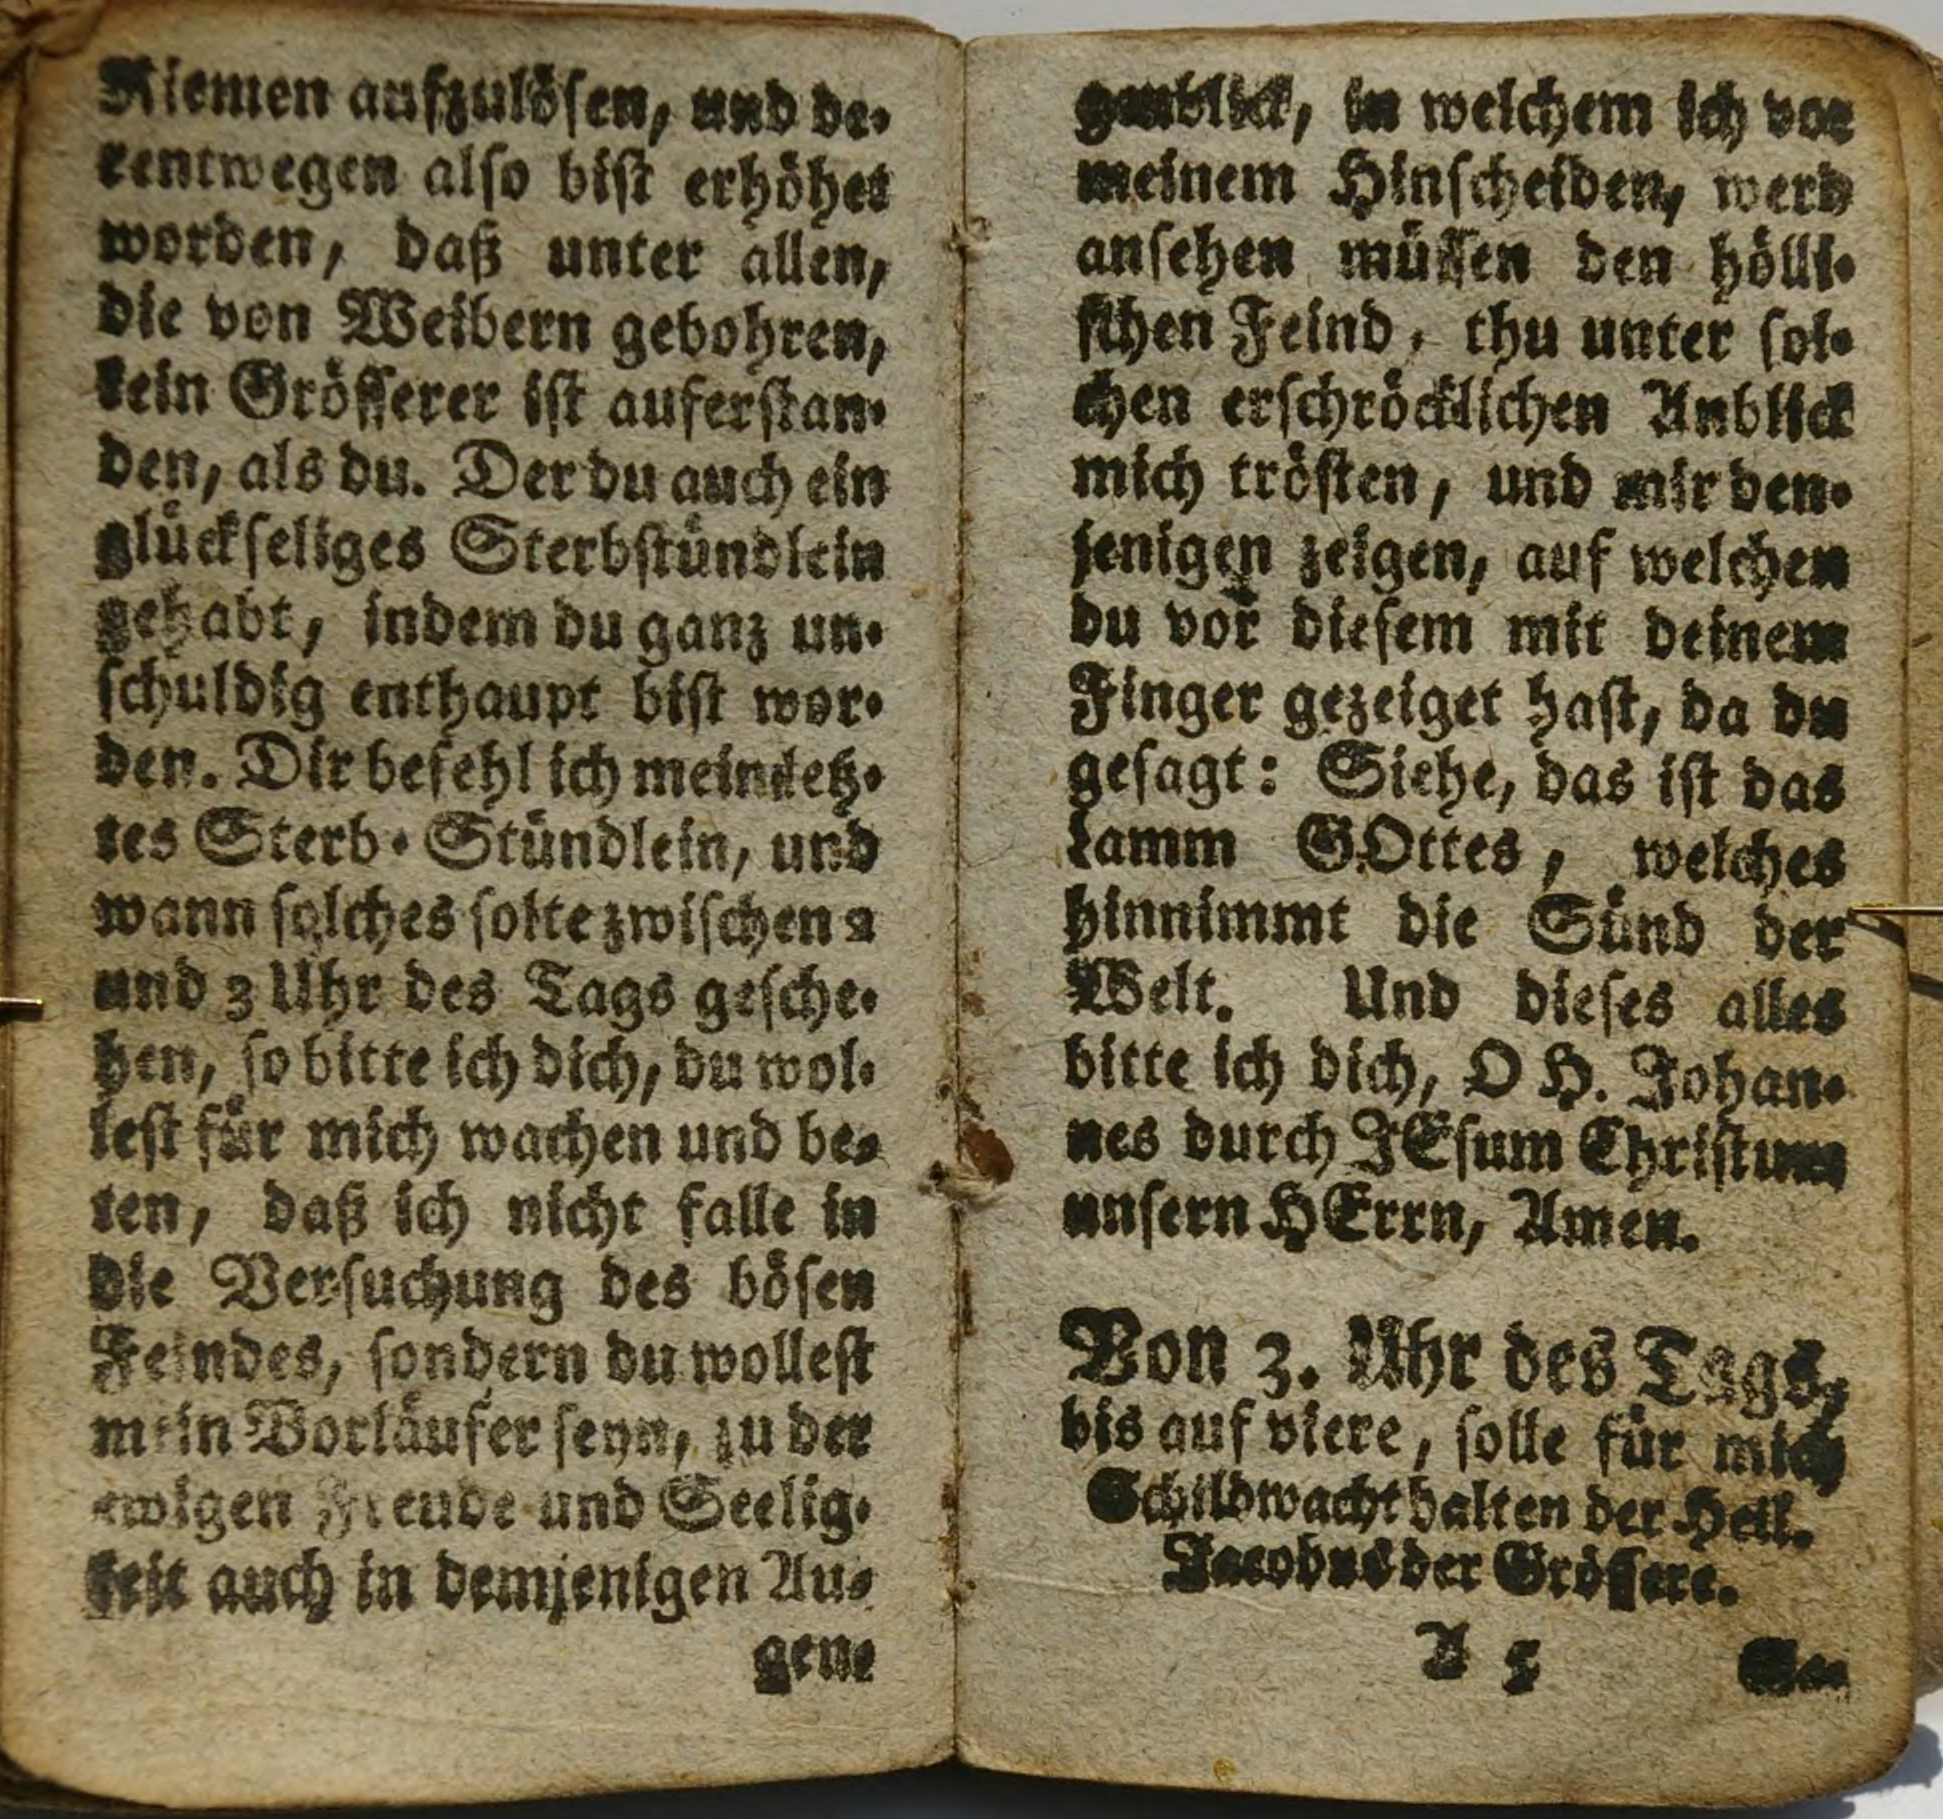 Riemen aufzulösen, und de-
rentwegen also bist erhöhet
worden, daß unter allen,
die von Weibern gebohren,
kein Grösserer ist auferstan-
den, als du. Der du auch ein
glückseliges Sterbstündlein
gehabt, indem du ganz un-
schuldig enthaupt bist wor-
den. Dir befehl ich mein letz-
tes Sterb-Stündlein, und
wann solches solte zwischen 2
und 3 Uhr des Tags gesche-
hen, so bitte ich dich, du wol-
lest für mich wachen und be-
ten, daß ich nicht falle in
die Versuchung des bösen
Feindes, sondern du wollest
mein Vorläufer seyn, zu der
ewigen Freude und Seelig-
keit auch in demjenigen Au-
gen-
genblick, in welchem ich vor
meinem Hinscheiden, werd
ansehen müssen den hölli-
schen Feind, thu unter sol-
chen erschröcklichen Anblick
mich trösten, und mir den-
jenigen zeigen, auf welchen
du vor diesem mit deinem
Finger gezeiget hast, da du
gesagt: Siehe, das ist das
Lamm GOttes, welches
hinnimmt die Sünd der
Welt. Und dieses alles
bitte ich dich, O H. Johan-
nes durch JEsum Christum
unsern HErrn, Amen.
Von 3. Uhr des Tags,
bis auf viere, solle für mich
Schildwacht halten der Heil.
Jacobus der Grössere.
A 5